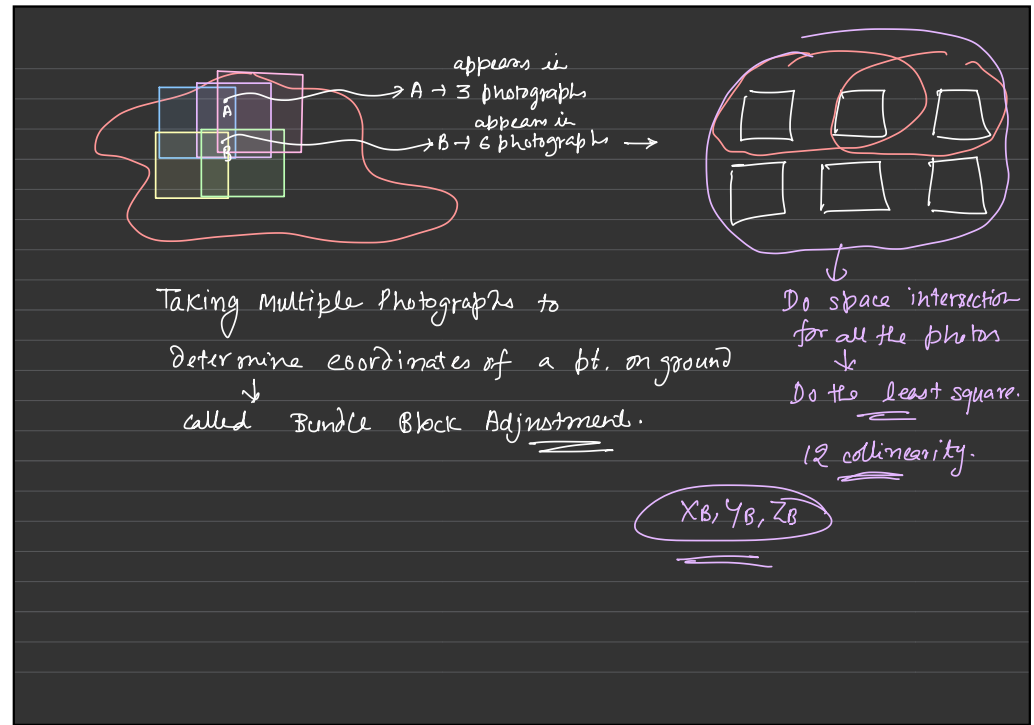 appears in
A → 3 photographs
appears in
B → 6 photographs →
A
B
Taking Multiple Photographs to
determine coordinates of a pt. on ground
called Bundle Block Adjustment.
Do space intersection
for all the photos
Do the least square.
12 collinearity.
XB, YB, ZB